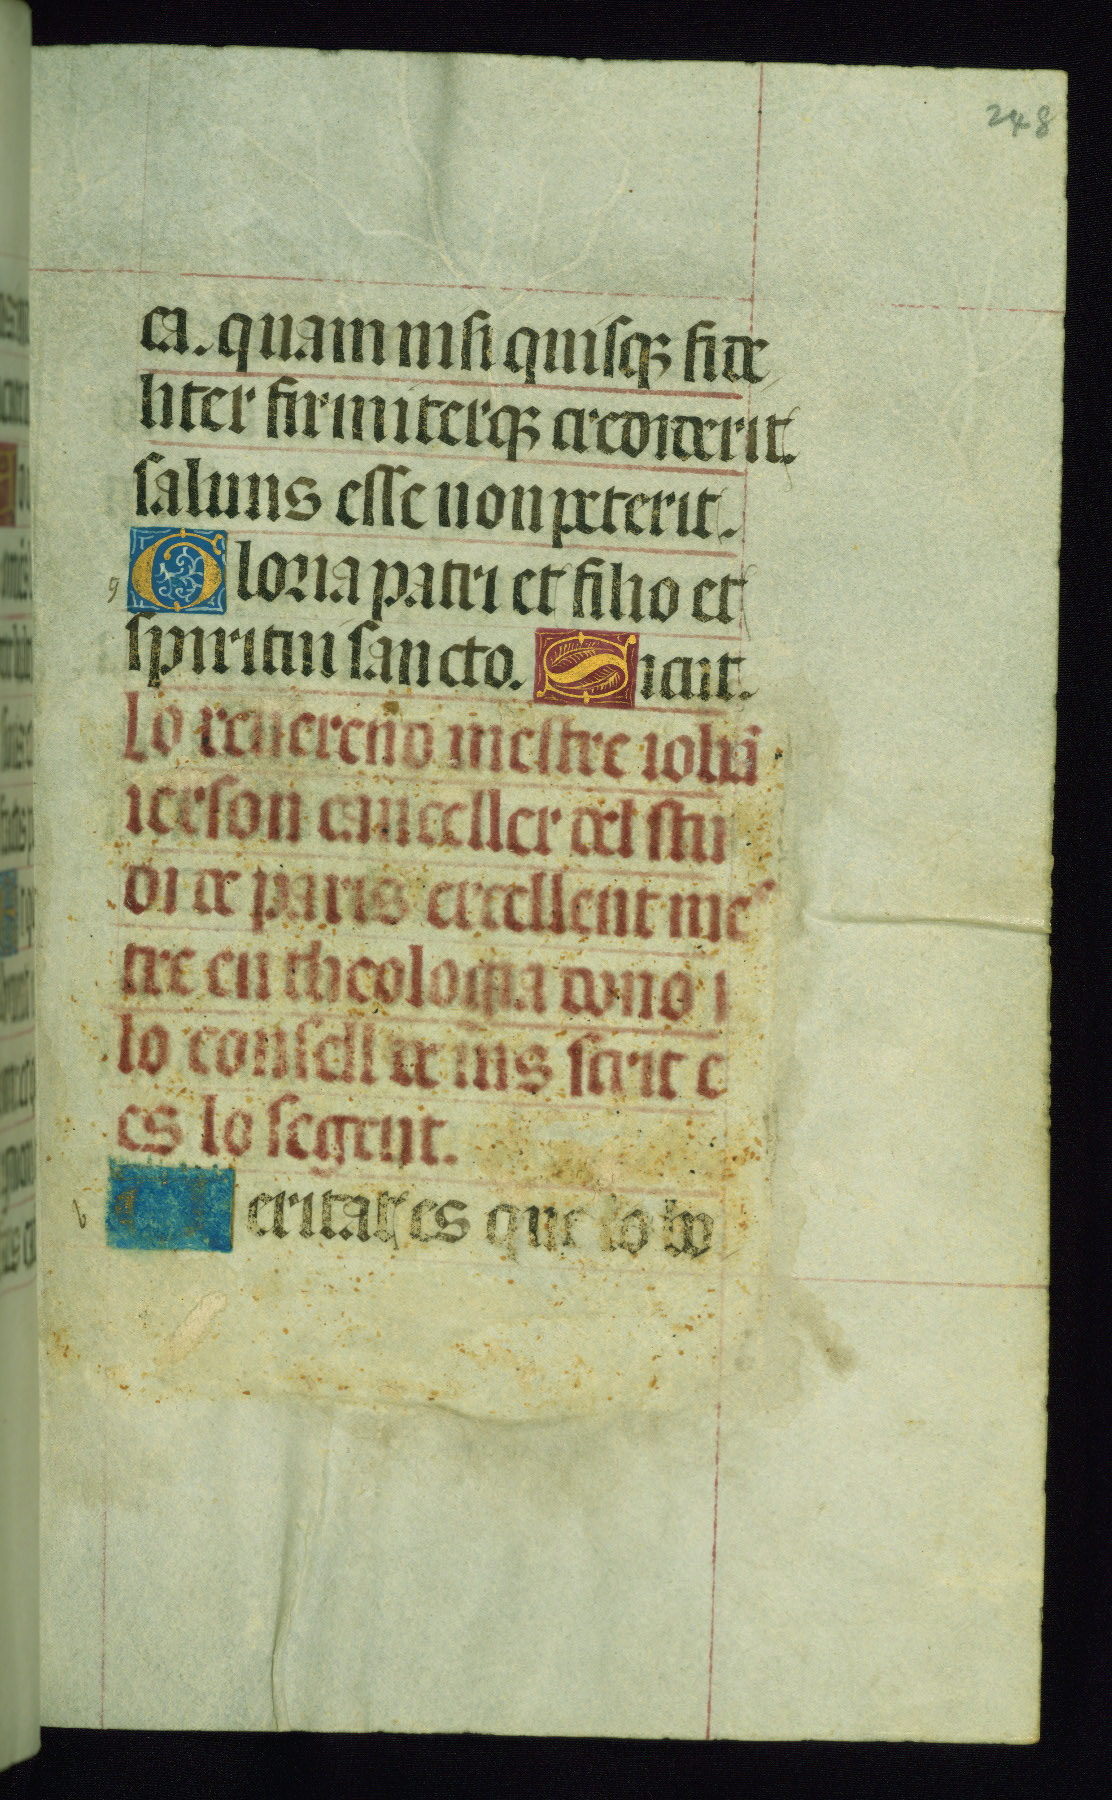 248
ca. quam nisi quisqꝫ fide
liter firmiterqꝫ crediderit.
saluus esse non poterit.
g Gloria patri et filio et
spiritui sancto. Sicut.
Lo reuerend mestre iohã
ierson canceller del stu
di de paris excellent mes
tre en theologia dono
lo consell de ius scrit e
es lo seguent.
eritats es que lo bo